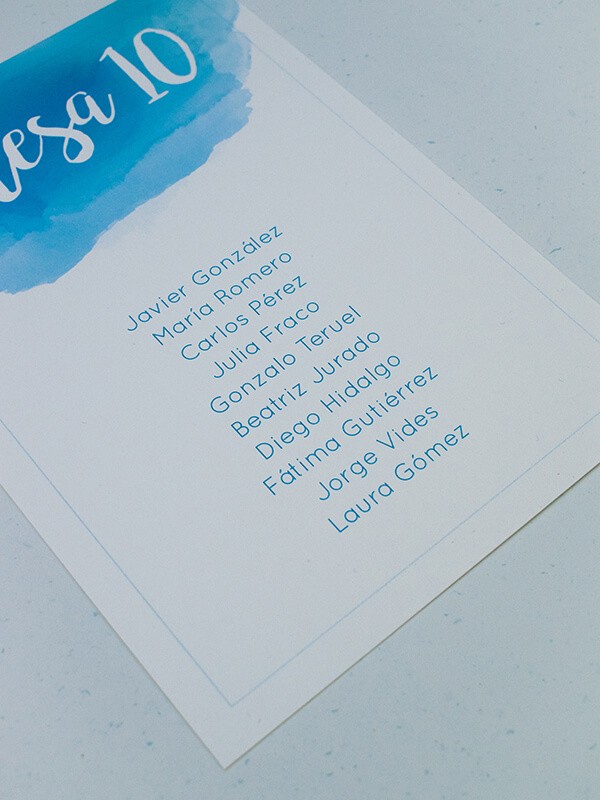 mesa 10
Javier González
María Romero
Carlos Pérez
Julia Fraco
Gonzalo Teruel
Beatriz Jurado
Diego Hidalgo
Fátima Gutiérrez
Jorge Vides
Laura Gómez